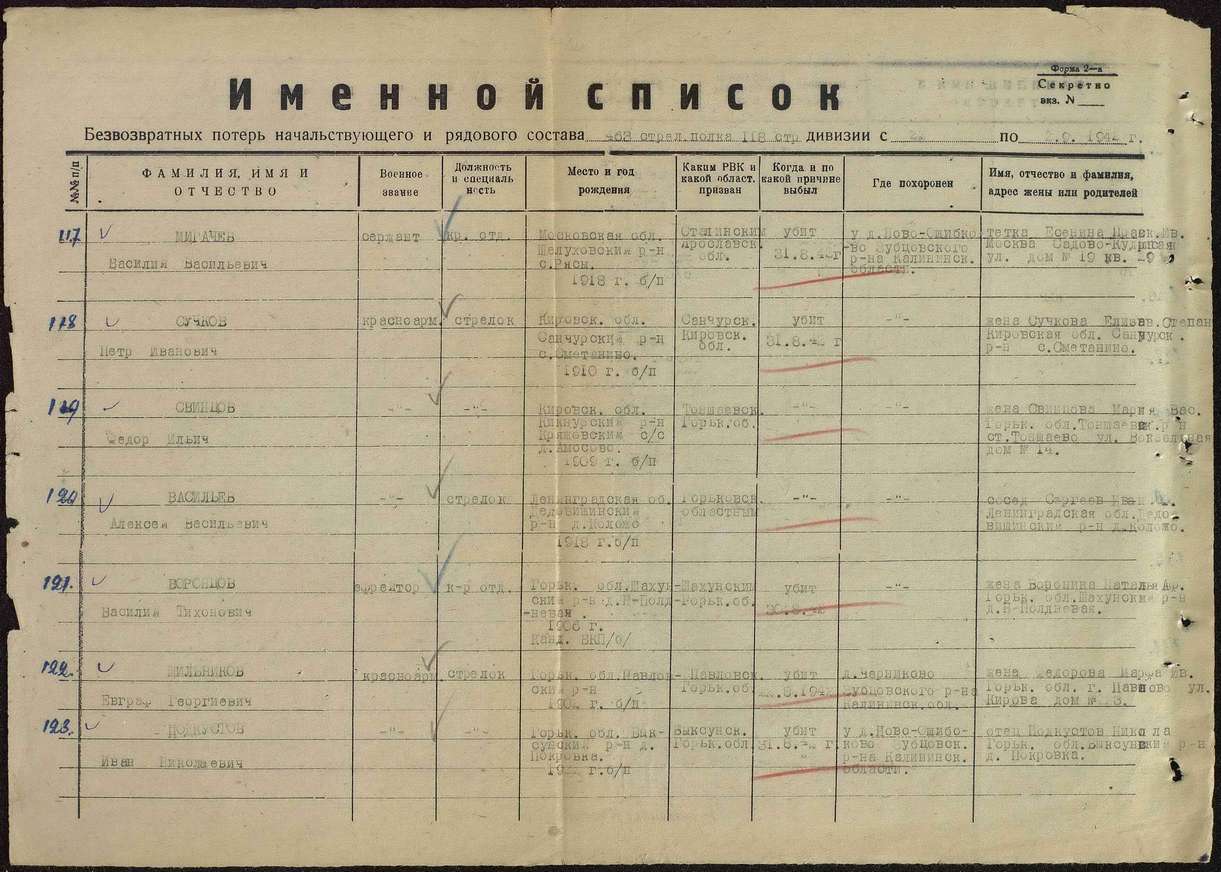 Форма 2—а
Секретно
экз. N
Именной список
Безвозвратных потерь начальствующего и рядового состава 463 стрел.полка 118 стр дивизии с по г.
№№ п/п
ФАМИЛИЯ, ИМЯ И ОТЧЕСТВО
Военное звание
Должность и специаль ность
Место и год рождения
Каким РВК и какой област. призван
Когда и по какой причине выбыл
Где похоронен
Имя, отчество и фамилия, адрес жены или родителей
117 МИГАЧЕВ сержант кр. отд. Московская обл. Сталинским убит у д.Ново-Ошибко- тетка Есенина Праск.Ив.
Василий Васильевич Шелуховский р-н Ярославск. обл. 31.8.42г во Зубцовского Москва Садово-Кудринская
с.Рясы. р-на Калининск. ул. дом № 19 кв. 29
1918 г. б/п области.
118 СУЧКОВ красноарм. стрелок Кировск. обл. Санчурск. убит -"- жена Сучкова Елизав.Степан
Петр Иванович Санчурский р-н Кировск. обл. 31.8.42 г Кировская обл. Санчурск.
с.Сметанино. р-н с.Сметанино.
1910 г. б/п
119 СВИНЦОВ -"- -"- Кировск. обл. Тоншаевск. -"- -"- жена Свинцова Мария Вас.
Федор Ильич Кикнурский р-н Горьк.об. Горьк. обл.Тоншаевск.р-н
с/с ст.Тоншаево ул. Вокзальная
д.Амосово. дом № 14.
1909 г. б/п
120 ВАСИЛЬЕВ -"- стрелок Ленинградская об. Горьковск. -"- -"- сосед Сергеев Иван
Алексей Васильевич Дедовишинский областным Ленинградская обл.Дедо-
р-н д.Коломо вишинский р-н д.Коломо.
1918 г.б/п
121. ВОРОНЦОВ ефрейтор к-р отд. Горьк. обл.Шахун- Шахунским убит -"- жена Наталья
Василий Тихонович ский р-н д.Н-Полд- Горьк.об. 30.8.42 Горьк. обл.Шахунский р-н
-невая. д.Н-Полдневая.
1906 г.
Канд. ВКП/б/
122. ШИЛЬНИКОВ красноарм стрелок Горьк. обл.Павлов- Павловск. убит д.Черниково жена Федорова Марфа Ив.
Евграф Георгиевич ский р-н Горьк.об. Зубцовского р-на Горьк. обл. г. Павлово ул.
г. б/п Калининск.обл. Кирова дом №
123. ПОДКУСТОВ -"- -"- Горьк. обл. Вык- Выксунск. убит у д.Ново-Ошибо- отец Подкустов Никола
Иван Николаевич сунский р-н д. Горьк.обл. 31.8.42 г. ково Зубцовск. Горьк. обл.Выксунский р-н
Покровка. р-на Калининск. д. Покровка.
г.б/п области.